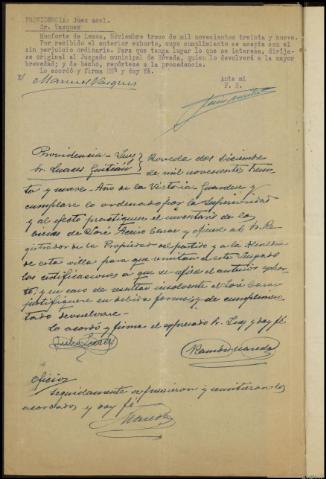 PROVIDENCIA: Juez acel.
Sr. Vazquez
Monforte de Lemos, Noviembre trece de mil novecientos treinta y nueve.
Por recibido el anterior exhorto, cuyo cumplimiento se acepta con el
sin perjuicio ordinario. Para que tenga lugar lo que se interesa, diríja-
se original al Juzgado municipal de Bóveda, quien lo devolverá a la mayor
brevedad; y de hecho, repórtese a la procedencia.
Lo acordó y firma SSª y doy fé.
Ante mi
Manuel Vazquez
P. D.
Providencia = Juez
Sr. Linares
Boveda dos diciembre
de mil novecientos trein
ta y nueve. = Año de la Victoria. Guardese y
cumplase lo ordenado por la Superioridad
y al efecto practiquese el inventario de
bienes de José y oficiese al Sr. Re
gistrador de la Propiedad del partido y a la Alcaldia
de esta villa para que remitan a este Juzgado
las certificaciones a que se refiere el anterior exhor
to, y en caso de resultar insolvente el José
justifiquese en debida forma; y de cumplimen
tado devuelvase.
Lo acordó y firma el expresado Sr. Juez y doy fé
Ramón
Oficios
Seguidamente se y remitieron los
acordados y doy fé